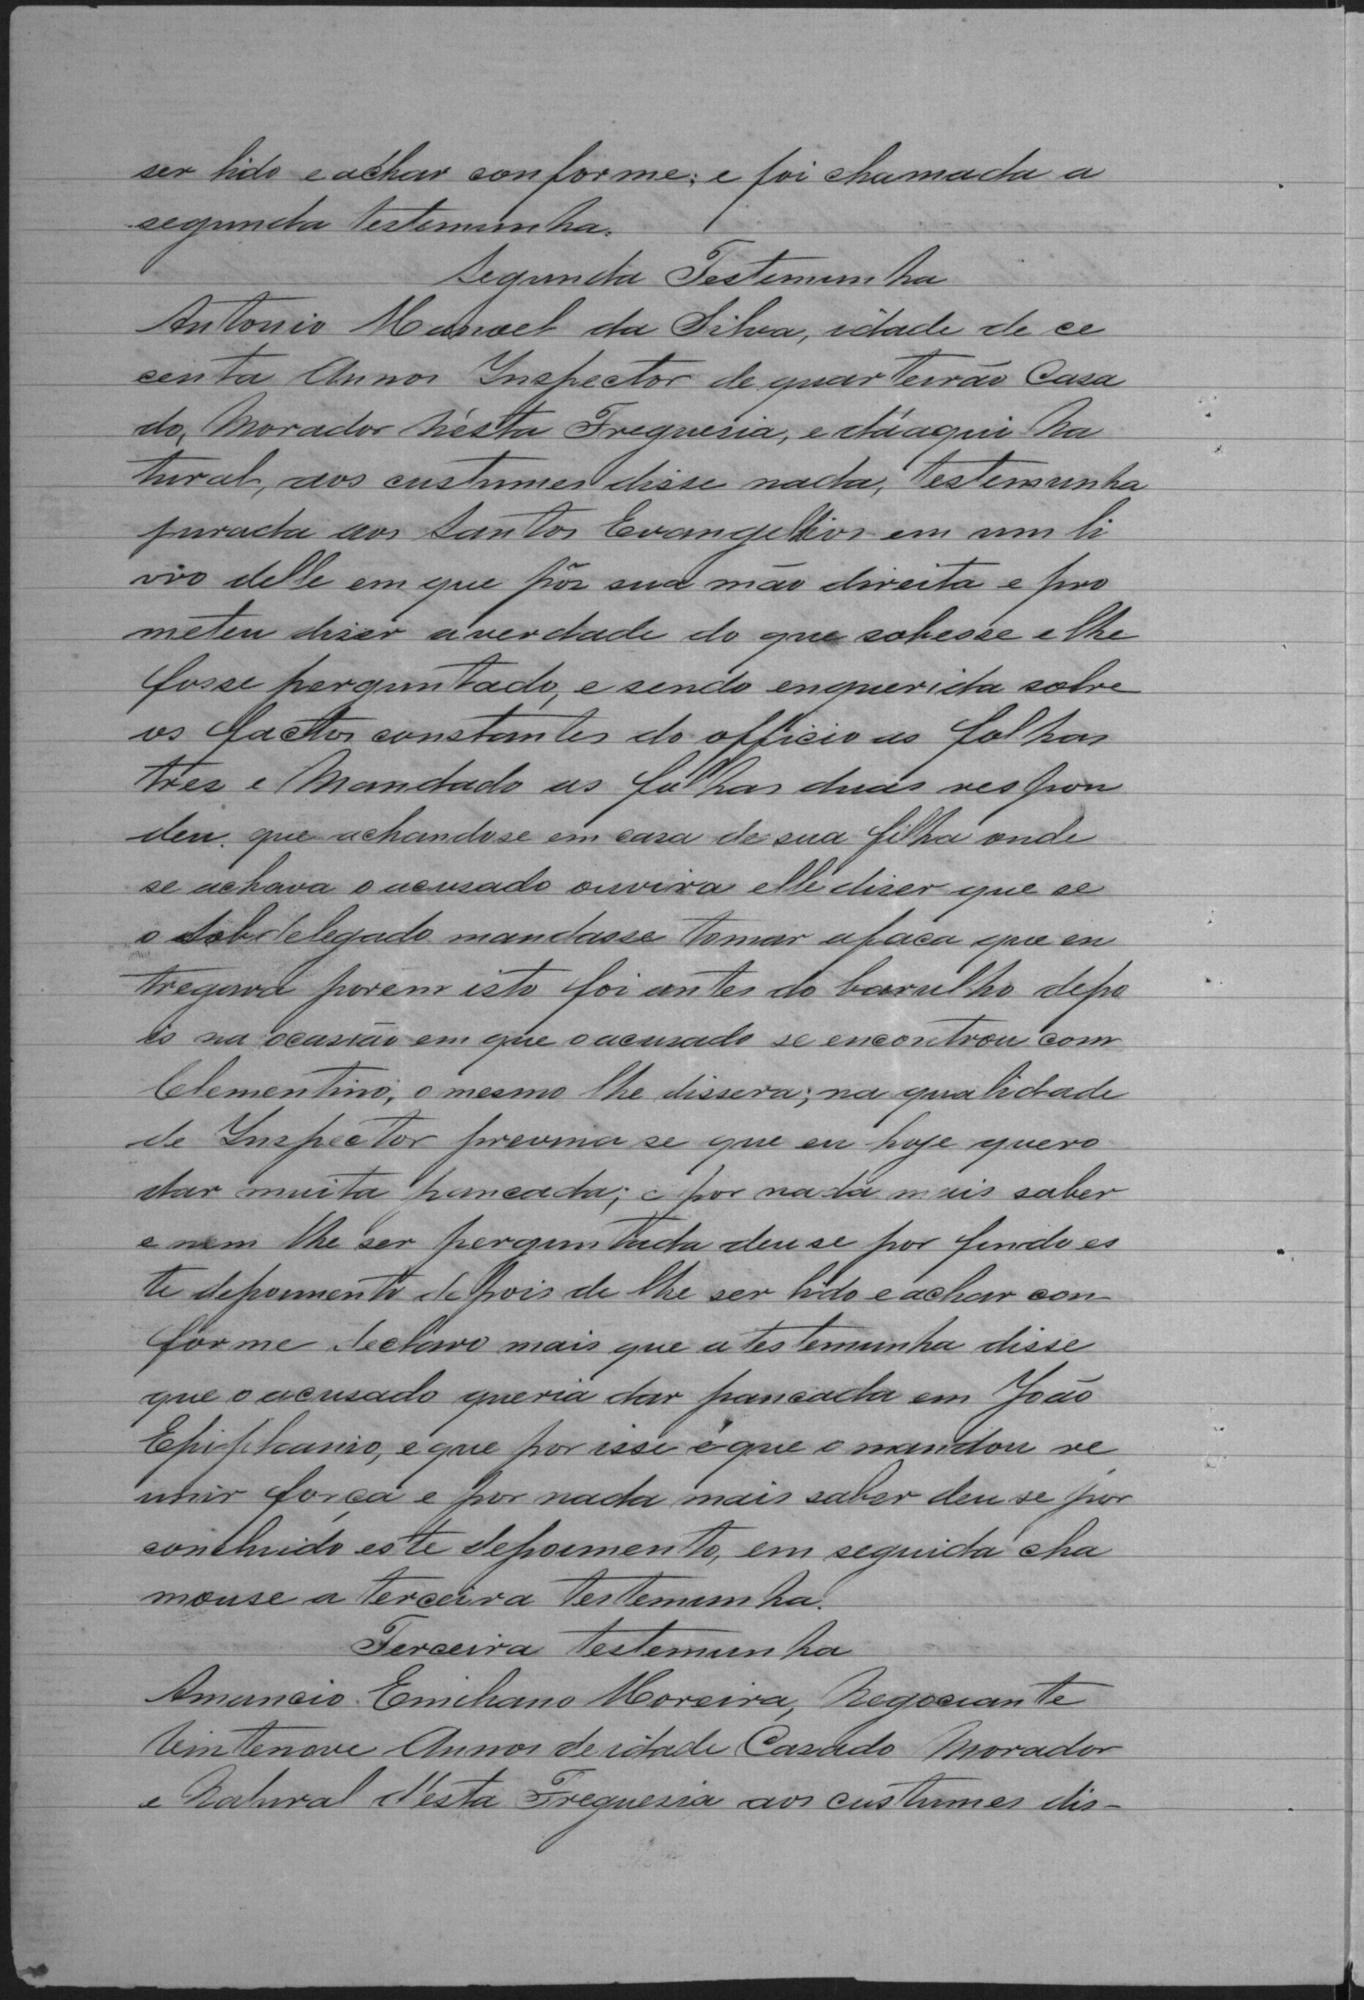 ser lido e achar conforme; e foi chamada a
segunda testemunha.
Segunda Testemunha
Antonio Manoel da Silva, idade de ce
centa Annos Inspector de quarteirão Casa
do, Morador n'ésta Freguesia, e d'áaqui Na
tural, aos custumes disse nada, testemunha
jurada aos Santos Evangelhos em um li
vro delle em que pôz sua mão direita e pro
meteu diser averdade do que sobesse e lhe
fosse perguntado, e sendo enquerida sobre
os factos constantes do officio as folhas
tres e Mandado as folhas duas respon
deu. que achandose em casa de sua filha onde
se achava o acusado ouvira elle diser que se
o Sobdelegado mandasse tomar afaca que en
tregava porem isto foi antes do barulho depo
is na ocasião em que o acusado se encontrou com
Clementino, o mesmo lhe dissera; na qualidade
de Inspector previna se que eu hoje quero
dar muita pancada; e por nada mais saber
e nem lhe ser perguntada deuse por findo es
te depoimento depois de lhe ser lido e achar con-
forme declaro mais que a testemunha disse
que o acusado queria dar pancada em João
Epiphanio, e que por isse é que o mandou re
unir força e por nada mais saber deu se por
concluido este depoimento, em seguida cha
mouse a terceira testemunha.
Terceira testemunha
Amancio Emiliano Moreira, Negociante
Vintenove Annos de idade Casado Morador
e Natural d'esta Freguesia aos custumes dis-